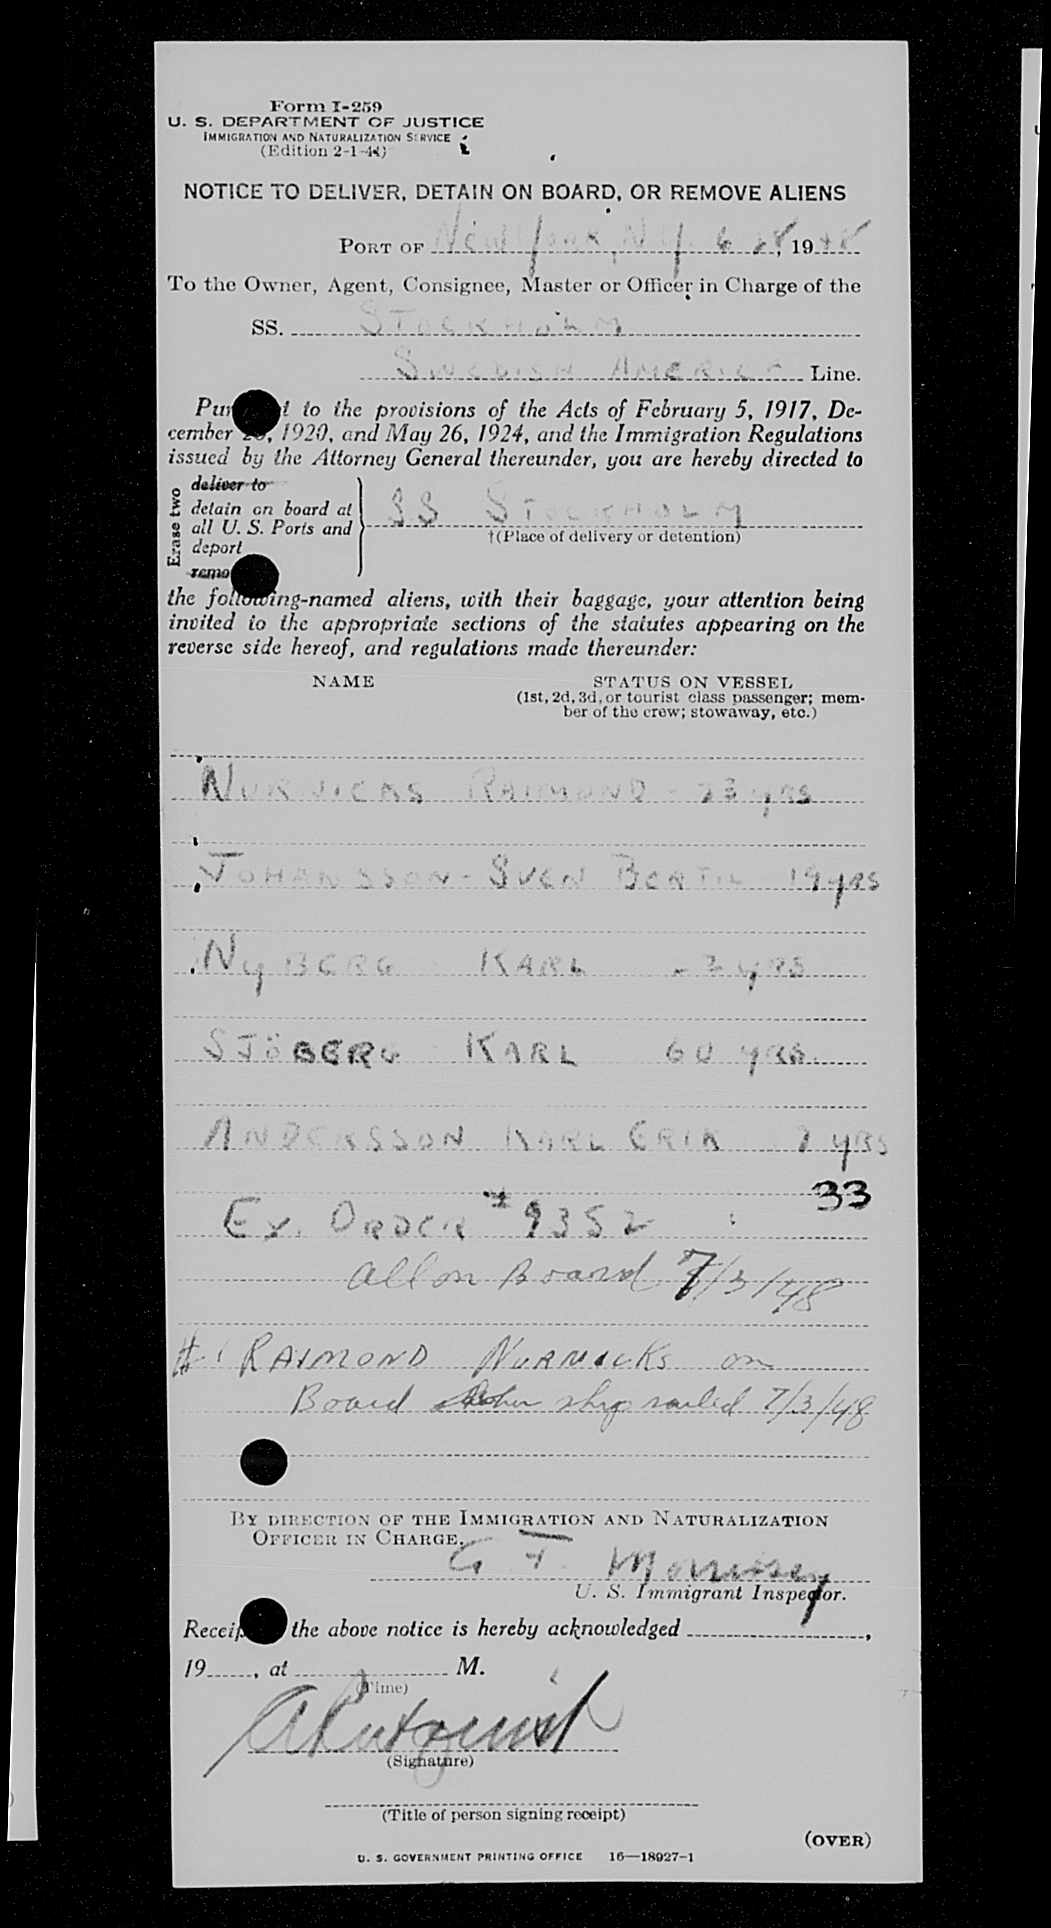 Form I-259
U. S. DEPARTMENT OF JUSTICE
IMMIGRATION AND NATURALIZATION SERVICE
(Edition 2-1-4)
NOTICE TO DELIVER, DETAIN ON BOARD, OR REMOVE ALIENS
PORT OF New York, N.y. 6 28, 1948
To the Owner, Agent, Consignee, Master or Officer in Charge of the
SS. STOCKHOLM
SWEDISH AMERICA Line.
Pur t to the provisions of the Acts of February 5, 1917, De-
cember , 1920, and May 26, 1924, and the Immigration Regulations
issued by the Attorney General thereunder, you are hereby directed to
Erase two
deliver to
detain on board at
all U. S. Ports and
deport
remo
SS STOCKHOLM
†(Place of delivery or detention)
the following-named aliens, with their baggage, your attention being
invited to the appropriate sections of the statutes appearing on the
reverse side hereof, and regulations made thereunder:
NAME STATUS ON VESSEL
(1st, 2d, 3d, or tourist class passenger; mem-
ber of the crew; stowaway, etc.)
RAIMOND - 23 yRS
JOHANSSON - SVEN BERTIL 19 yRS
NyBERG KARL yRS
SJÖBERG KARL 60 yRS.
ANDERSSON KARL ERIK yRS
33
Ex. ORDER # 9352
all on Board 7/3/48
#1 RAIMOND on
Board ship sailed 7/3/48
BY DIRECTION OF THE IMMIGRATION AND NATURALIZATION
OFFICER IN CHARGE.
G F. Morrissey
U. S. Immigrant Inspector.
Receip the above notice is hereby acknowledged ,
19 , at M.
(Time)
(Signature)
(Title of person signing receipt)
(OVER)
U. S. GOVERNMENT PRINTING OFFICE 16—18927-1